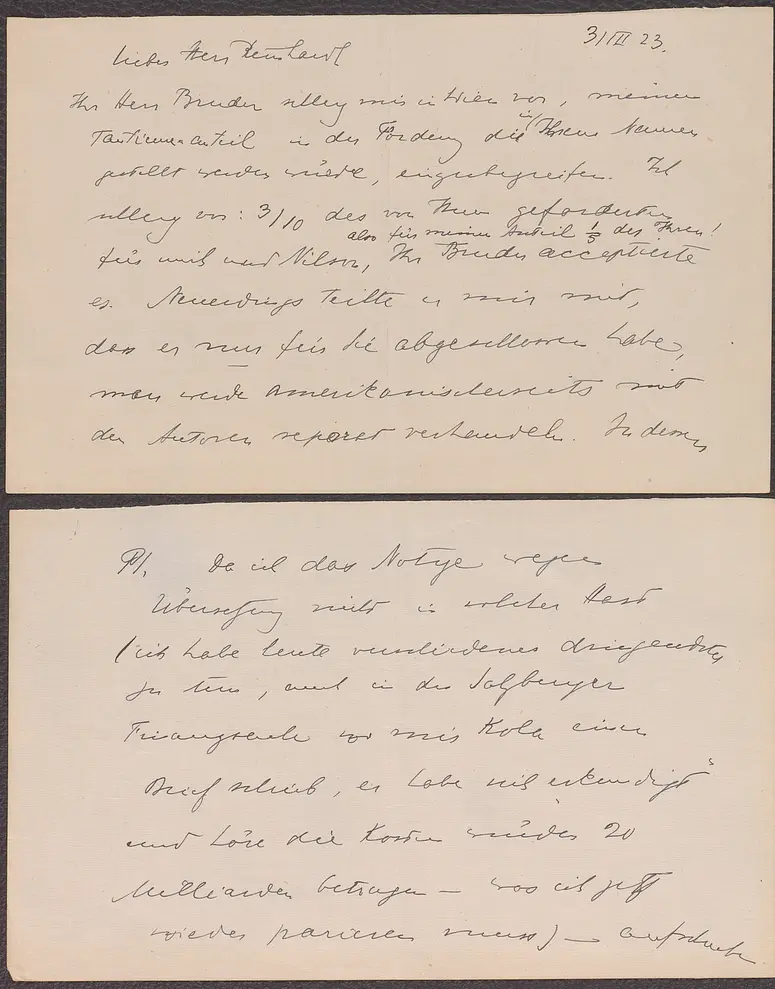 31/III 23.
Lieber Herr Reinhardt
Ihr Herr Bruder schlug mir in Wien vor, meinen
Tantiemenanteil in der Forderung die in Ihrem Namen
gestellt werden würde, einzubegreifen. Ich
schlug vor: 3/10 des von Ihnen geforderten
also für meinen Anteil 1/5 des Ihren!
für mich und Nilson, Ihr Bruder acceptierte
es. Neuerdings teilte er mir mit,
dass er nur für Sie abgeschlossen habe,
man werde amerikanischerseits mit
den Autoren separat verhandeln. In dessen
PS. Da ich das Nötige wegen
Übersetzung nicht in solcher Hast
(ich habe heute verschiedenes dringendstes
zu tun, auch in der Salzburger
Finanzsache wo mir Kola einen
Brief schrieb, er habe sich "erkundigt"
und höre die Kosten würden 20
Milliarden betragen – was ich jetzt
wieder parieren muss) – aufschreibe